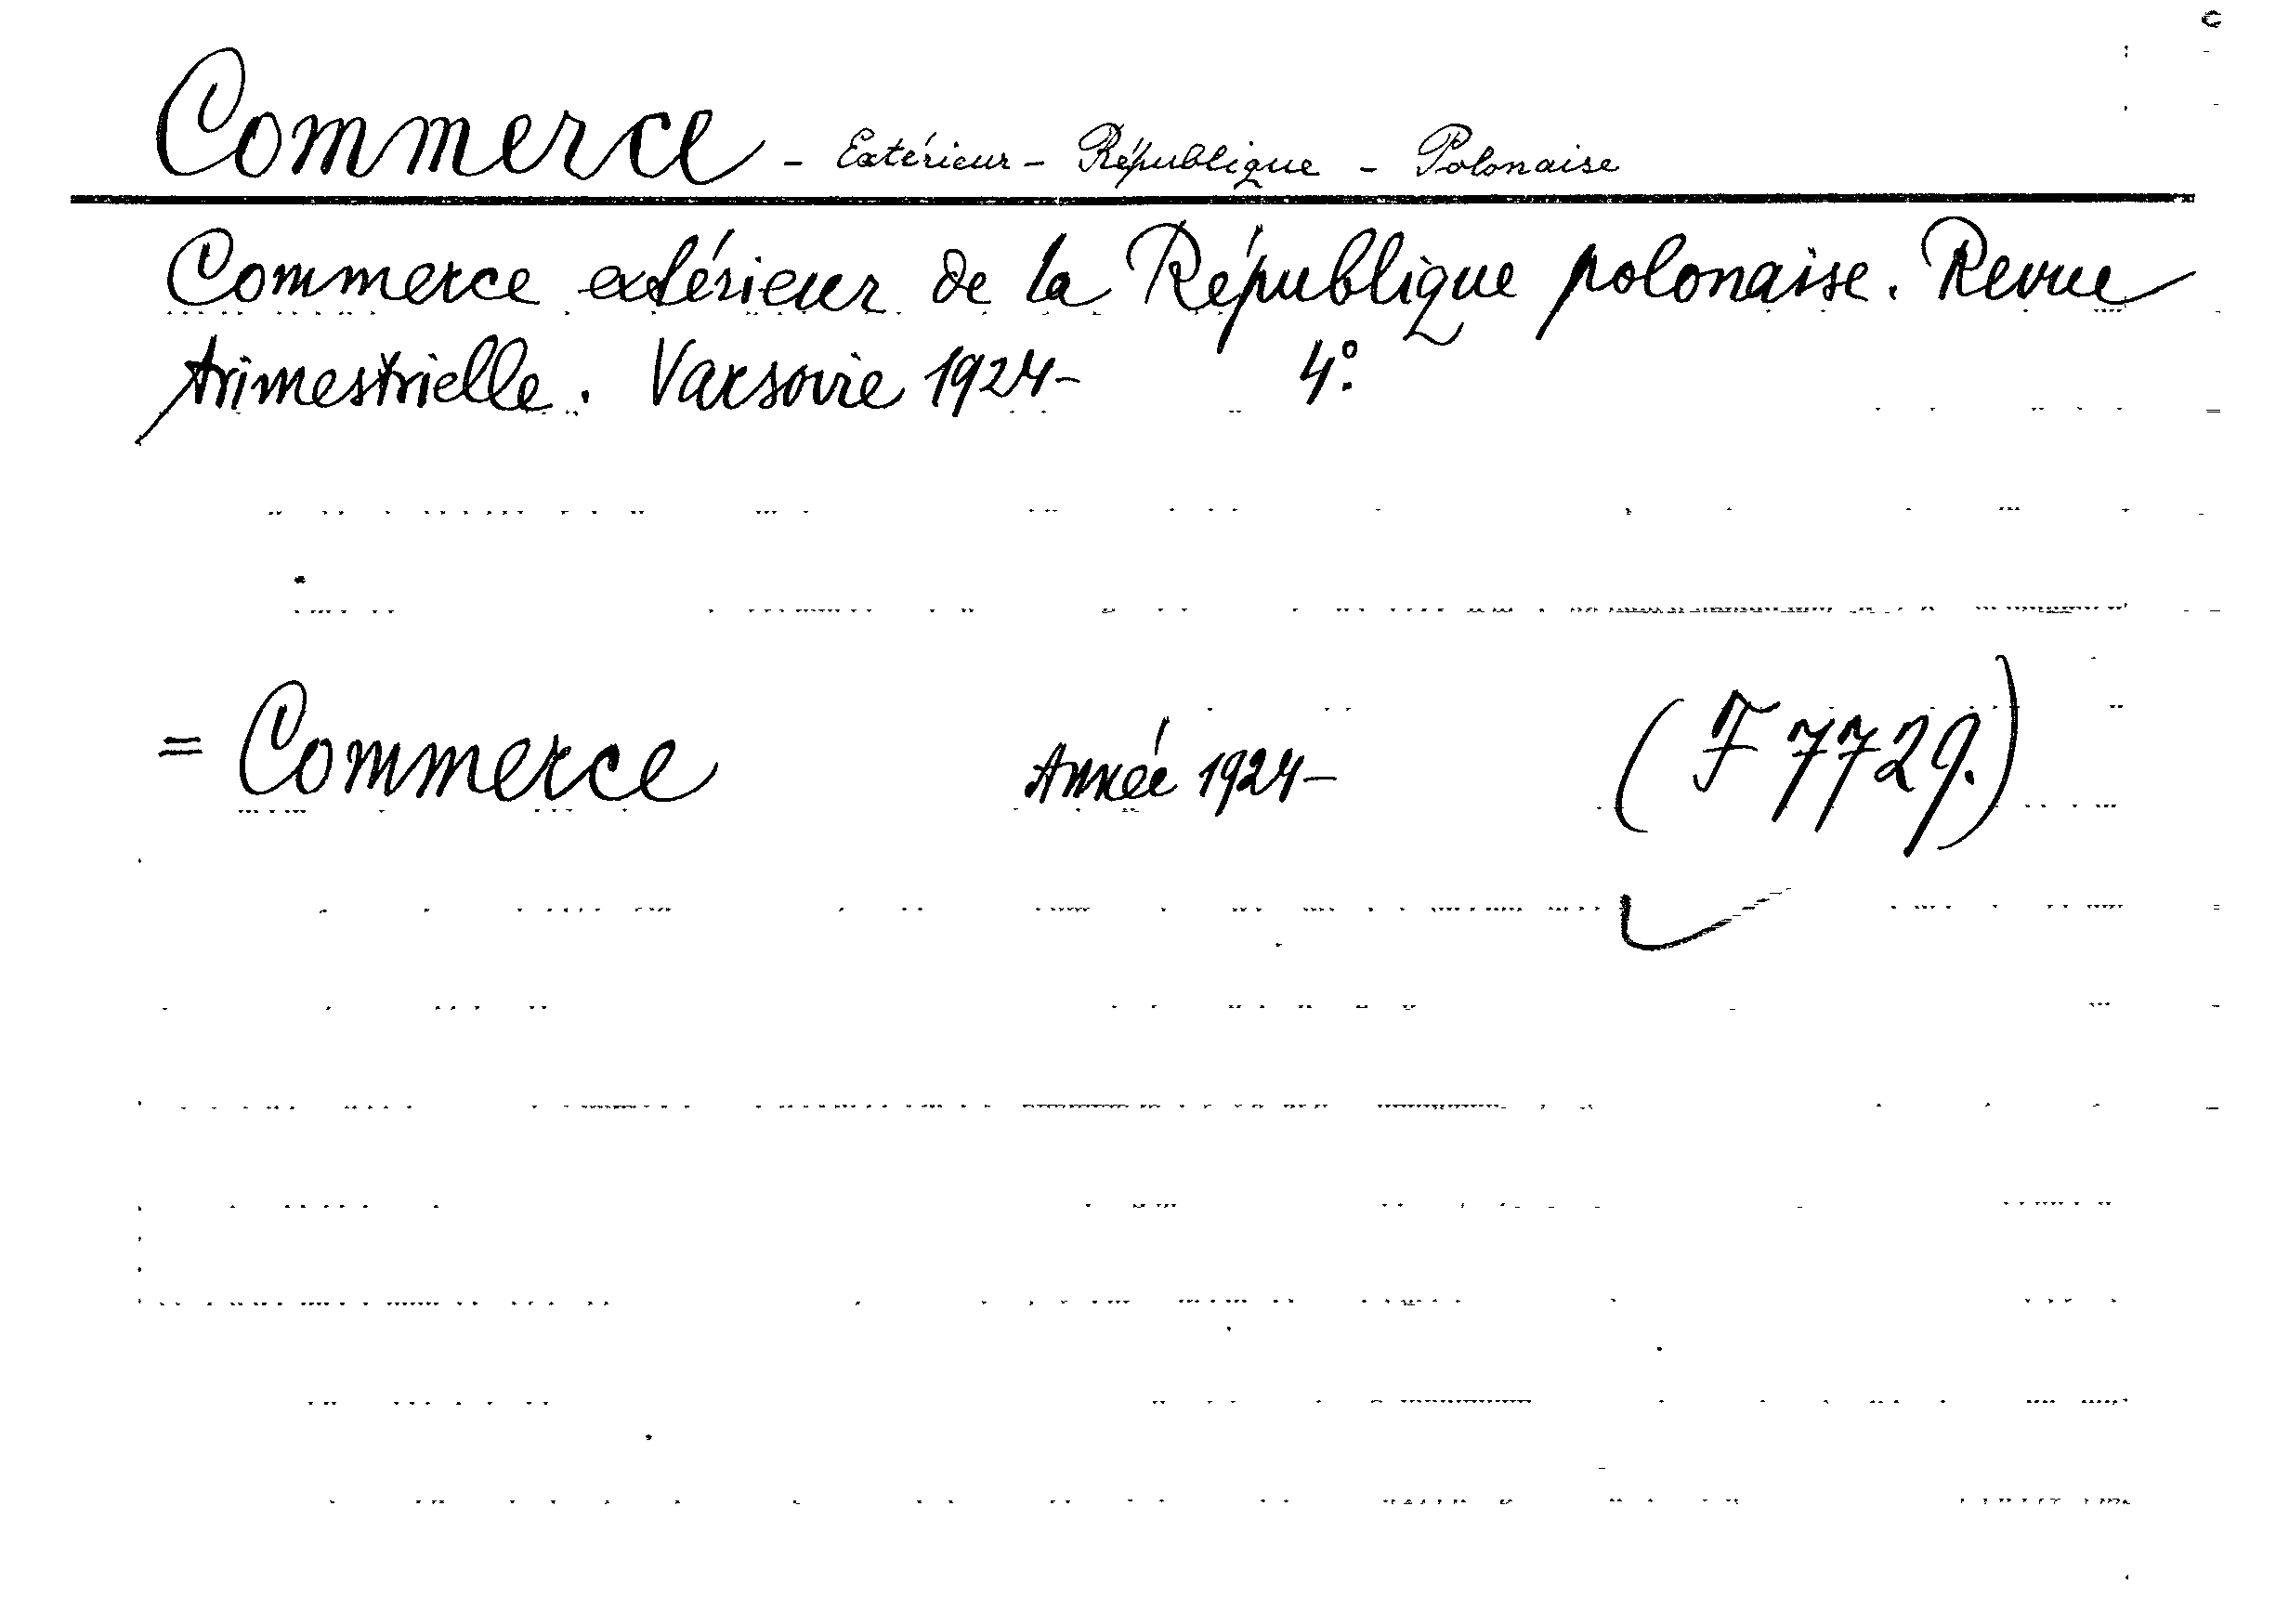 Commerce - Extérieur - République - Polonaise
Commerce extérieur de la République polonaise. Revue
trimestrielle. Varsovie 1924- 4°.
= Commerce Année 1924- (F 7729.)